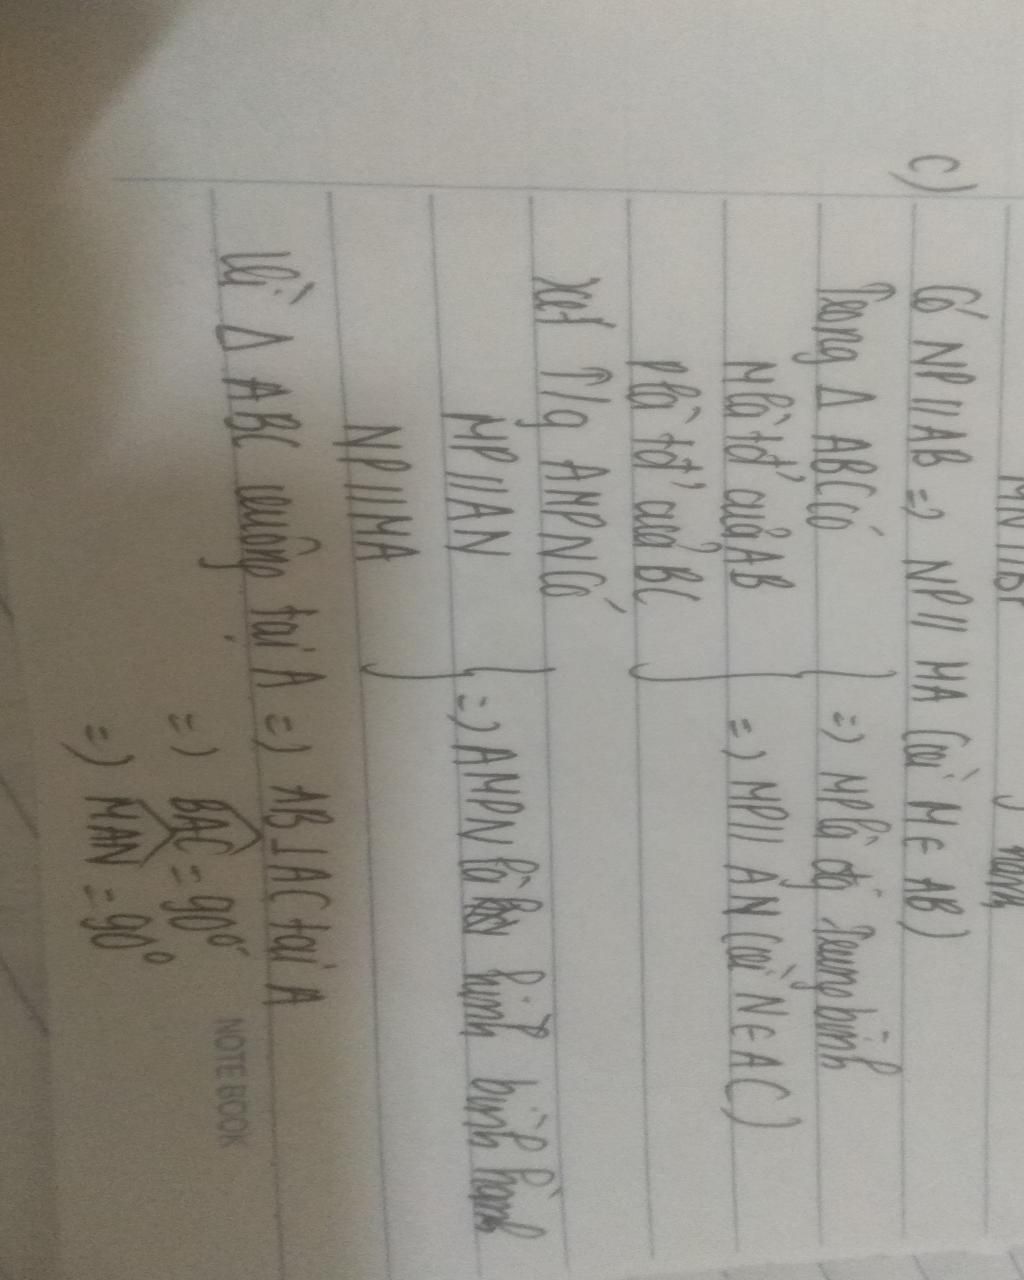 MN // BP
hành
c) Có NP // AB => NP // MA (vì M ∈ AB)
Trong Δ ABC có
M là tđ' của AB => MP là đg trung bình
P là tđ' của BC => MP // AN (vì N ∈ AC)
Xét T/g AMPN có
MP // AN => AMPN là hình bình hành
NP // MA
Vì Δ ABC vuông tại A => AB ⊥ AC tại A
=> BAC = 90°
=> MAN = 90°
NOTE BOOK